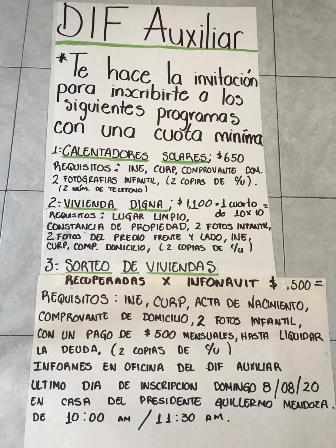 DIF Auxiliar
*Te hace la invitación
para inscribirte a los
siguientes programas
con una cuota mínima
1:CALENTADORES SOLARES; $650
REQUISITOS: INE, CURP, COMPROVANTE DOM.
2 FOTOGRAFIAS INFANTIL, (2 COPIAS DE %).
(2 NÚM. DE TELEFONO)
2: VIVIENDA DIGNA; $1,100 = 1 cuarto =
de 10 x 10
REQUISITOS: LUGAR LIMPIO,
CONSTANCIA DE PROPIEDAD, 2 FOTOS INFANTIL,
2 FOTOS DEL PREDIO FRENTE Y LADO, INE,
CURP, COMP. DOMICILIO, (2 COPIAS DE %)
3: SORTEO DE VIVIENDAS
RECUPERADAS X INFONAVIT $ .500=
REQUISITOS: INE, CURP, ACTA DE NACIMIENTO,
COMPROVANTE DE DOMICILIO, 2 FOTOS INFANTIL,
CON UN PAGO DE $500 MENSUALES, HASTA LIQUIDAR
LA DEUDA, (2 COPIAS DE %)
INFORMES EN OFICINA DEL DIF AUXILIAR
ULTIMO DIA DE INSCRIPCION DOMINGO 8/08/20
EN CASA DEL PRESIDENTE GUILLERMO MENDOZA.
DE 10:00 AM / 11:30 AM.